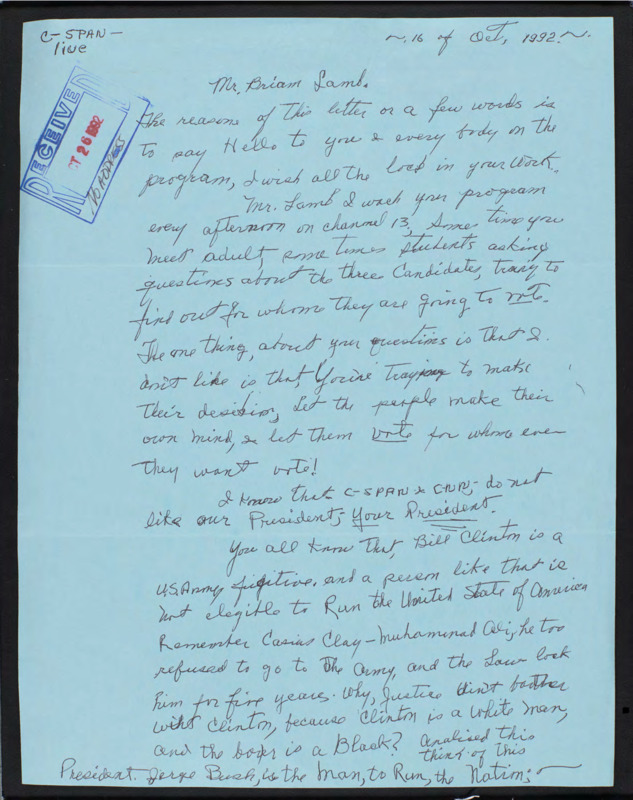 C-SPAN-
live
~.16 of Oct, 1992.~.
RECEIVED
OCT 26 1992
NO ADDRESS
Mr. Briam Lamb.
The reasons of this letter or a few words is
to say Hello to you & every body on the
program, I wish all the lock in your work.
Mr. Lamb I wach your program
every afternoon on channel 13, Some time you
meet adult, some times students asking
questions about the three Candidates, traing to
find out for whome they are going to vote.
The one thing, about your questions is that I.
don't like is that, You're Traying to make
their desition, Let the people make their
own mind, & let them vote for whome ever
they want vote!
I know that C-SPAN & CNN,- do not
like our President,- Your President.
You all know that, Bill Clinton is a
U.S. Army fugitive. and a person like that is
not elegible to Run the United State of America
Remember Casius Clay - Muhammad Ali, he too
refused to go to the army, and the Law lock
him for five years. Why, Justice din't bother
with Clinton, because Clinton is a White man,
and the boxer is a Black? Analised this
think of this
President. Jorge Bush, is the Man, to Run, the Nation;~